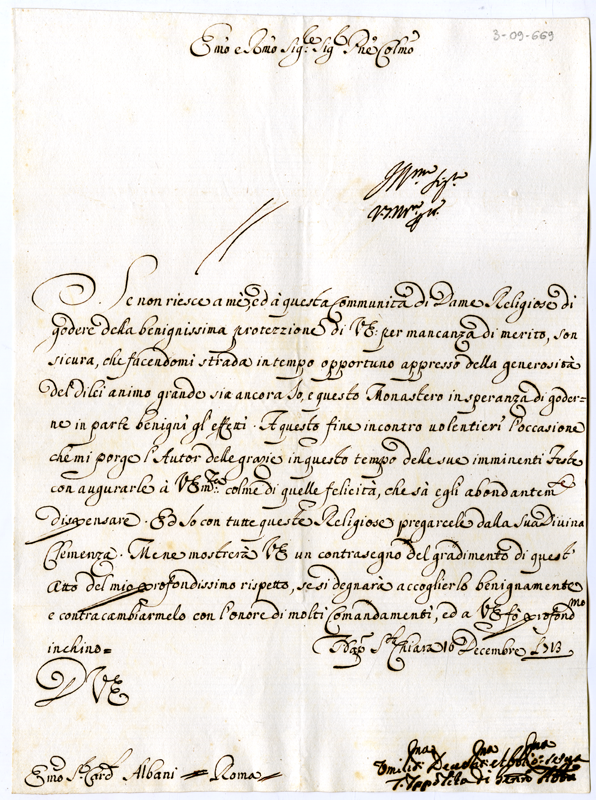 3-09-669
Emo e Rmo Sigre Sigr Pne Colmo
Se non riesce a mè, ed à questa Communità di Dame Religiose di
godere della benignissima protezzione di VE: per mancanza di merito, son
sicura, che facendomi strada in tempo opportuno appresso della generosità
del di lei animo grande sia ancora Io, e questo Monastero in speranza di goder=
ne in parte benigni gl'effetti. A questo fine incontro volentieri l'occasione
che mi porge l'Autor delle grazie in questo tempo delle sue imminenti Feste
con augurarle à VEmza colme di quelle felicità, che sà egli abondantemte
dispensare. Ed Io con tutte queste Religiose pregarcele dalla Sua Divina
Clemenza. Me ne mostrerà VE un contrasegno del gradimento di quest'
Atto del mio profondissimo rispetto, se si degnarà accoglierlo benignamente
e contracambiarmelo con l'onore di molti Comandamenti, ed a VE fò profondmo
inchino=
Sta Chiara 16 Decembre 1713
D VE
Emo Sr Card Albani = Roma
Umilma Devma et Obbma serva